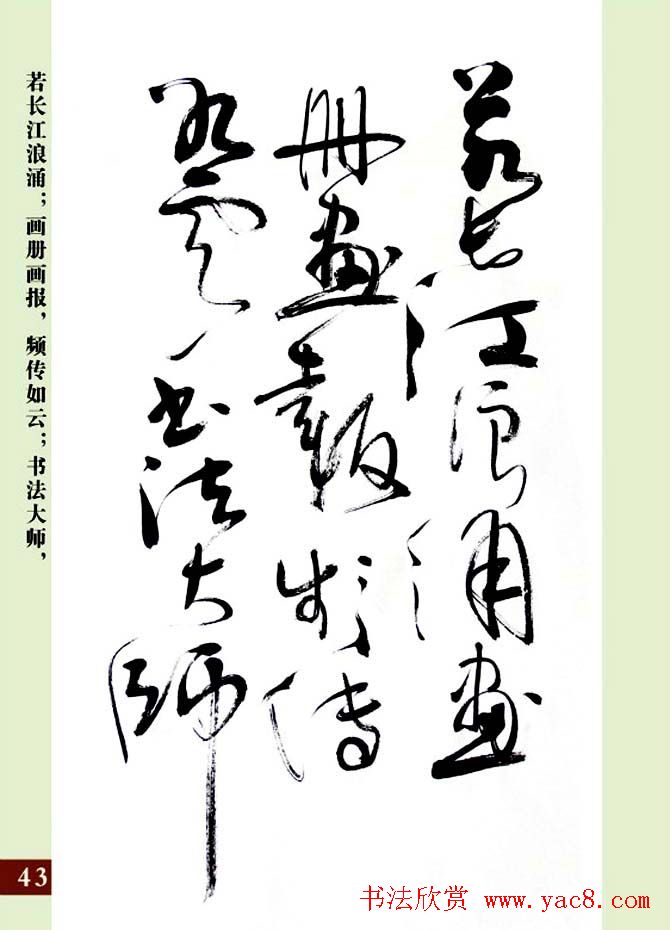 若长江浪涌画
册画报频传
如云书法大
师
若长江浪涌；画册画报，频传如云；书法大师，
43
书法欣赏 www.yac8.com